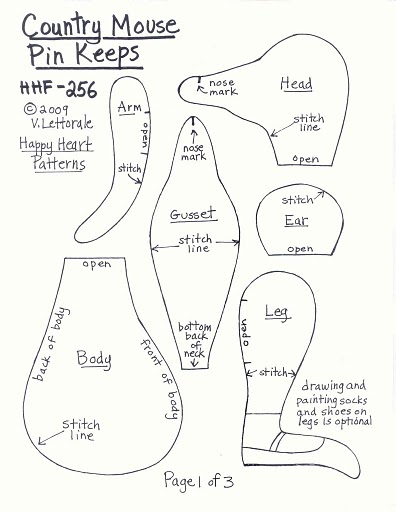 Country Mouse
Pin Keeps
HHF-256
©2009
V. Lettorale
Happy Heart
Patterns
Arm
open
stitch
nose
mark
Head
stitch
line
open
nose
mark
Gusset
stitch
line
bottom
back
of
neck
stitch
Ear
open
open
back of body
Body
front of body
stitch
line
Leg
open
stitch
drawing and
painting socks
and shoes on
legs is optional
Page 1 of 3